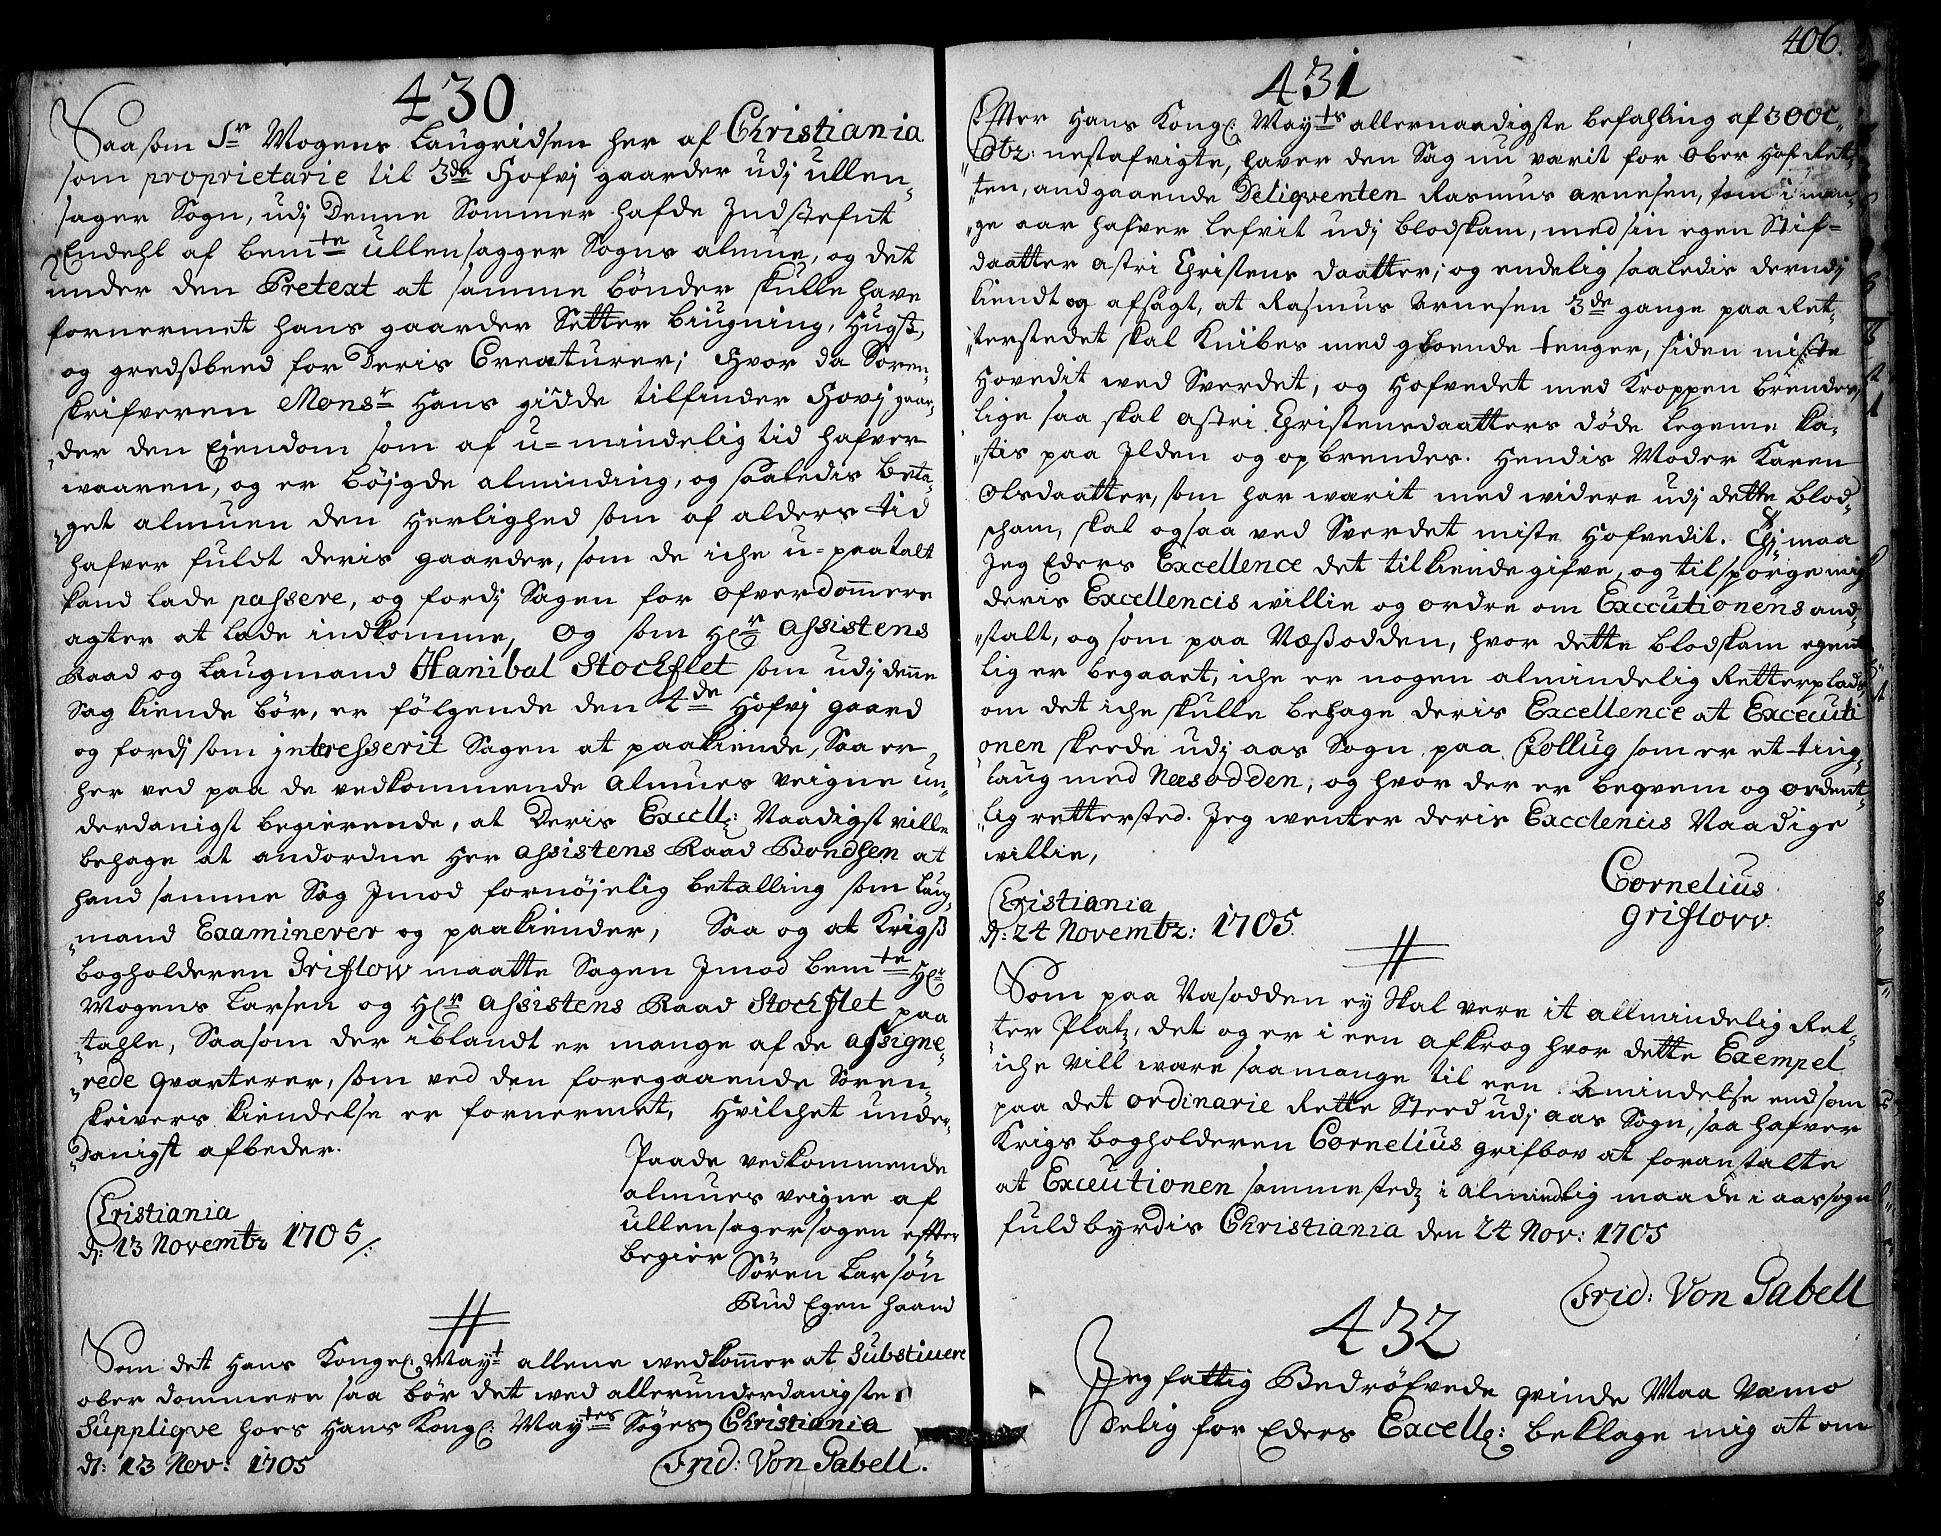 430
Saasom Sr Mogens Laugridsen her af Christiania
som proprietarie til 3de Hofvj gaarder udj ullen„
sager Sogn, udj Denne Sommer hafde Indstefnt
Endehl af bemte ullensagger Sogns almue, og det
under den Pretext at samme bönder skulle have
fornermet hans gaarder Setter biugning, hugst,
og gredsbeed for Deris Creaturer; Hvor da Soren„
skrifveren Monsr Hans gidde tilfinder Hovj gaar„
„der den Eiendom som af u=mindelig tid hafver
waaren, og er böigde alminding, og saaledis beta„
„get almuen den Herlighed som af alders tid
hafver fuldt deris gaarder, som de iche u=paatalt
kand lade passere, og fordj Sagen for ofverdommere
agter at lade indkomme, Og som Hr assistens
Raad og Laugmand Hanibal Stockflet som udj denne
Sag kiende bör, er fölgende den 4de Hofvj gaard
og fordj som interesserit Sagen at paakiende, Saa er
her ved paa de vedkommende Almues veigne un„
derdanigst begierende, at Deris Excell: Naadigst ville
behage at andordne Her assistens Raad Bondsen at
hand samme Sag Imod fornöjelig betalling som laug„
„mand Examinerer og paakiender, Saa og at Krigs
bogholderen Griflow maatte Sagen Imod bemte Hr
Mogens Larsen og Hr assistens Raad Stockflet paa
„tahle, Saasom der iblandt er mange af de assigne„
„rede qvarterer, som ved den foregaaende Soren„
skrivers kiendelse er fornermet, Hvilchet under„
„danigst afbeder.
Paade vedkommende
almues veigne af
ullensagersogen effter
begier
Christiania
d: 13 Novembr 1705/:
Sören Larsön
Rud Egen haand
#
Som det Hans Kongel: Mayt allene wedkommer at Substiuere
ober dommere saa bör det wed allerunderdanigste
Suppliqve hoes Hans Kongl: Mayts Söges Christiania
d: 13 Nov: 1705
Frid: Von Gabell.
406.
431
Effter Hans Kongl: Mayts allernaadigste befahling af 30 Oc„
„tbr: nestafvigte, haver den Sag nu varit for Ober Hof Ret„
„ten, andgaaende Deliqventen Rasmus Arnesen, som i man„
„ge aar hafver lefvit udj blodskam, med sin egen Stif=
daatter Astri Christens daatter; og endelig saaledis derudj
kiendt og afsagt, at Rasmus Arnesen 3de gange paa Ret„
„terstedet skal Knibes med gloende tenger, siden miste
Hovedit med Sverdet, og Hofvedet med Kroppen brendes,
lige saa skal Astri Christensdaatters döde legeme ka„
„stis paa Ilden og opbrendes. Hendis Moder Karen
Olsdaatter, som har warit med widere udj dette blod„
scham, skal ogsaa ved Sverdet miste Hofvedit. Ej maa
Jeg Eders Excellence det tilkiendegifve, og tilspörge mig
deris Excellencis willie og ordre om Executionens and„
„stalt, og som paa Næsodden, hvor dette blodskam egent„
lig er begaaet, iche er nogen almindelig Retterplads,
om det iche skulle behage deris Excellence at Executi
„onen skeede udj aas Sogn paa Follug som er et ting„
„laug med Næsodden, og hvor der er beqvem og ordent„
„lig rettersted. Jeg wenter deris Excelencis Naadige
willie,
Cornelius
griflow.
Christiania
d: 24 Novembr: 1705.
#
Som paa Næsodden ey Skal vere it allmindelig Ret„
„ter Platz, det og er i een afkrog hvor dette Exempel
iche vill ware saamange til een amindelse endsom
paa det ordinarie Rette Steed udj aas Sogn, saa hafver
Krigs bogholderen Cornelius grifbov at foranstalte
at Executionen sammestedz i Almindelig maade i aas sogn
fuldbyrdis Christiania den 24 Nov: 1705
Frid: Von Gabell
432
Jeg fattig Bedröfvede qvinde Maa Væmo
delig for Eders Excell: beklage mig at om